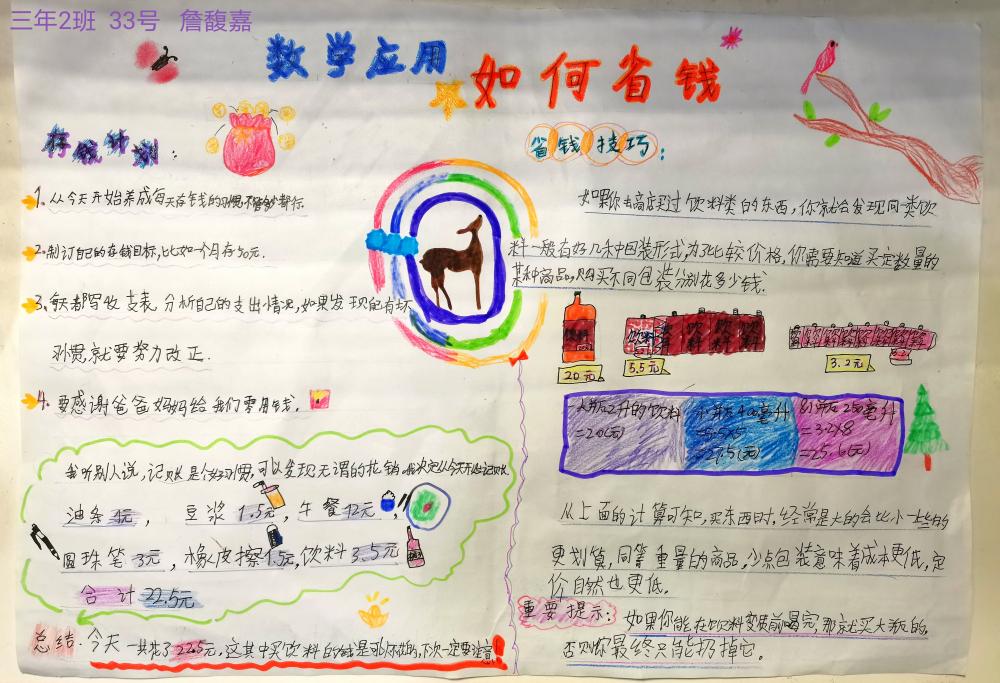 三年2班 33号 詹馥嘉
数学应用
如何省钱
存钱计划：
1. 从今天开始养成每天存钱的习惯,
2. 制订自己的存钱目标,比如一个月存30元.
3. 每天都写收支表，分析自己的支出情况,如果发现配有坏
习惯就要努力改正.
4. 要感谢爸爸妈妈给我们零用钱.
我听别人说，记账是个好习惯,可以发现无谓的花销,我决定从今天开始记账
油条4元， 豆浆1.5元,午餐12元,
圆珠笔3元,橡皮擦1.5元,饮料3.5元
合计22.5元
总结:今天一共花了22.5元,这其中买饮料的钱是可以不花的,下次一定要注意!
省钱技巧：
如果你去商店买过饮料类的东西,你就会发现同一类饮
料一般有好几种包装形式为了比较价格,你需要知道买定数量的
某种商品,购买不同包装分别花多少钱.
饮料
20元
饮料
饮料
饮料
5.5元
3.2元
大瓶2升的饮料
=20(元)
小瓶400毫升
=5.5×5
=27.5(元)
250毫升
=3.2×8
=25.6(元)
从上面的计算可知,买东西时,经常是大的会比小一些的
更划算,同等重量的商品,少点包装意味着成本更低,定
价自然也更低.
重要提示: 如果你能在饮料变质前喝完,那就买大瓶的,
否则你最终只能扔掉它。